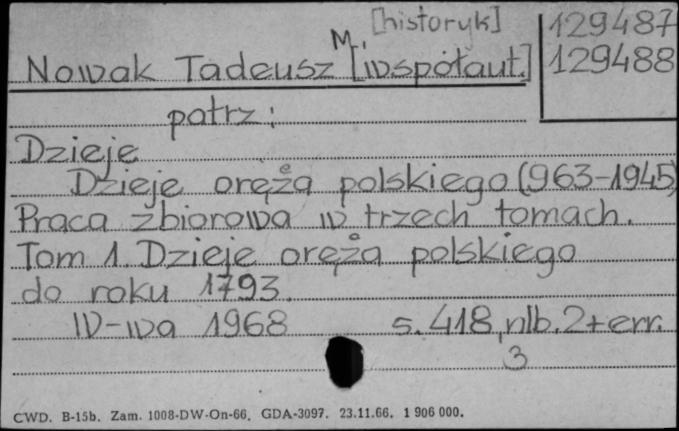 [historyk] 129487
Nowak Tadeusz M. [współaut.] 129488
patrz:
Dzieje
Dzieje oręża polskiego (963-1945)
Praca zbiorowa w trzech tomach.
Tom 1. Dzieje oręża polskiego
do roku 1793.
W-wa 1968 s. 418, nlb. 2 + err.
3
CWD. B-15b. Zam. 1008-DW-On-66. GDA-3097. 23.11.66. 1 906 000.